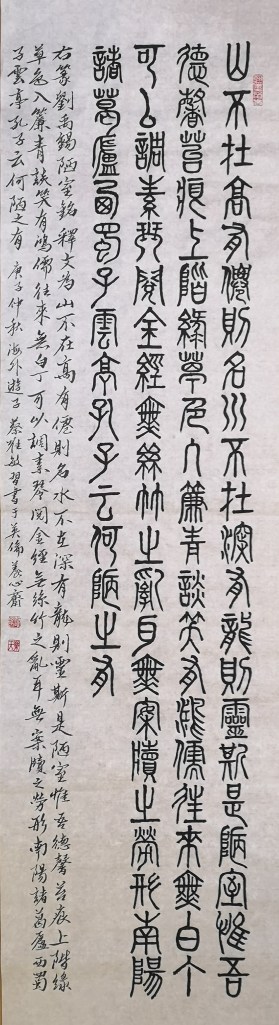 山不在高有僊則名水不在深有龍則靈斯是陋室惟吾
德馨苔痕上階綠草色入簾青談笑有鴻儒往來無白丁
可以調素琴閱金經無絲竹之亂耳無案牘之勞形南陽
諸葛廬西蜀子雲亭孔子云何陋之有
右篆劉禹錫陋室銘釋文為山不在高有僊則名水不在深有龍則靈斯是陋室惟吾德馨苔痕上階綠
草色入簾青談笑有鴻儒往來無白丁可以調素琴閱金經無絲竹之亂耳無案牘之勞形南陽諸葛廬西蜀
子雲亭孔子云何陋之有 庚子仲秋 海外遊子 蔡敏習書于英倫養心齋